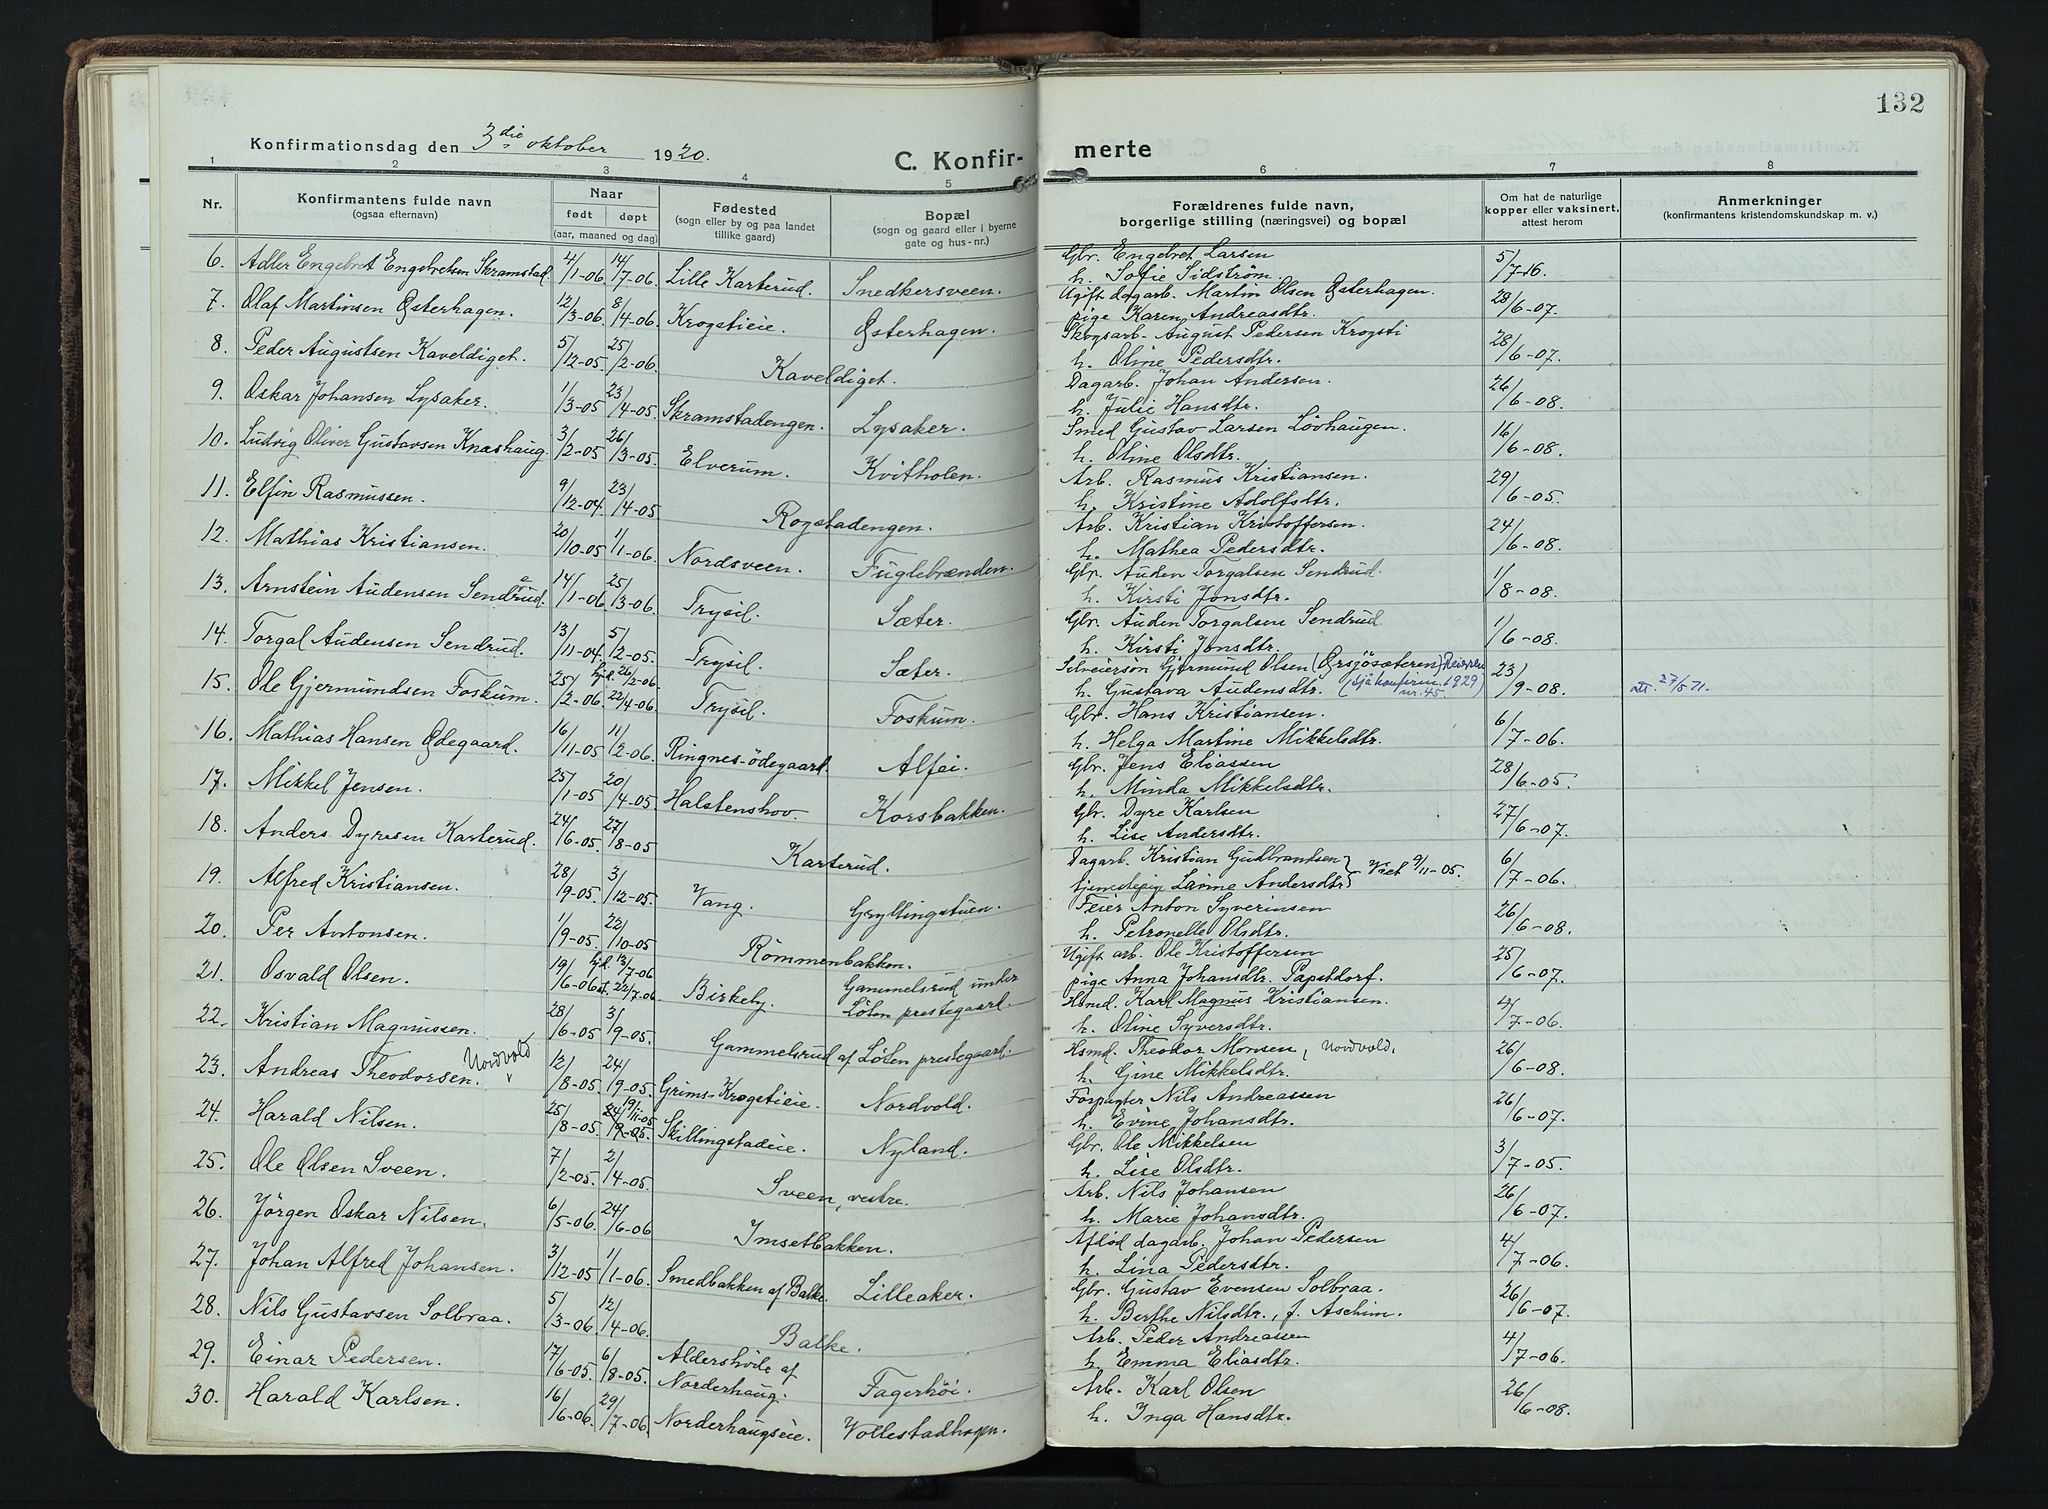 132
Konfirmationsdag den 3die oktober 1920.
C. Konfir-
merte
1 2 3 4 5 6 7 8
Nr.
Konfirmantens fulde navn
(ogsaa efternavn)
Naar
født døpt
(aar, maaned og dag)
Fødested
(sogn eller by og paa landet
tillike gaard)
Bopæl
(sogn og gaard eller i byerne
gate og hus-nr.)
Forældrenes fulde navn,
borgerlige stilling (næringsvei) og bopæl
Om hat de naturlige
kopper eller vaksinert,
attest herom
Anmerkninger
(konfirmantens kristendomskundskap m. v.)
6. Adler Engebret Engebretsen Skramstad. 4/1-06. 14/7-06. Lille Karterud. Snedkersveen. Gbr. Engebret Larsen
h. Sofie Sidström. 5/7-16.
7. Olaf Martinsen Østerhagen. 12/3-06. 8/4-06. Krogstieie. Østerhagen. Ugift dagarb. Martin Olsen Østerhagen.
pige Karen Andreasdtr. 28/6-07.
8. Peder Augustsen Kaveldiget. 5/12-05. 25/2-06. Kaveldiget. Skogsarb. August Pedersen Krogsti
h. Oline Pedersdtr. 28/6-07.
9. Oskar Johansen Lysaker. 1/3-05. 23/4-05. Skramstadengen. Lysaker. Dagarb. Johan Andersen.
h. Julie Hansdtr. 26/6-08.
10. Ludvig Oliver Gustavsen Knæshaug. 3/2-05. 26/3-05. Elverum. Kvitholen. Smed Gustav Larsen Lövhaugen.
h. Oline Olsdtr. 16/6-08.
11. Elfin Rasmussen. 9/12-04. 23/4-05. Rogstadengen. Arb. Rasmus Kristiansen.
h. Kristine Adolfsdtr. 29/6-05.
12. Mathias Kristiansen. 20/10-05. 1/1-06. Nordsveen. Fuglebrænden. Arb. Kristian Kristoffersen.
h. Mathea Pedersdtr. 24/6-08.
13. Arnstein Audensen Sendrud. 14/1-06. 25/3-06. Trysil. Sæter. Gbr. Auden Torgalsen Sendrud.
h. Kirsti Jonsdtr. 1/8-08.
14. Torgal Audensen Sendrud. 13/11-04. 5/2-05. Trysil. Sæter. Gbr. Auden Torgalsen Sendrud
h. Kirsti Jonsdtr. 1/6-08.
15. Ole Gjermundsen Foskum. 25/2-06. hjd. 26/2-06. 22/4-06. Trysil. Foskum. Selveiersön Gjermund Olsen (Ørsjösæteren)
h. Gustava Audensdtr. (sjå konfirm. 1929 nr. 45) 23/9-08. att. 27/5 71.
16. Mathias Hansen Ødegaard. 16/11-05. 11/2-06. Ringnes-ödegaard. Alfei. Gbr. Hans Kristiansen.
h. Helga Martine Mikkelsdtr. 6/7-06.
17. Mikkel Jensen. 25/1-05. 20/4-05. Halstenshov. Korsbakken. Gbr. Jens Eliassen
h. Minda Mikkelsdtr. 28/6-05.
18. Anders Dyresen Karterud. 24/6-05. 27/8-05. Karterud. Gbr. Dyre Karlsen
h. Lise Andersdtr. 27/6-07.
19. Alfred Kristiansen. 28/9-05. 3/12-05. Vang. Gryllingstuen. Dagarb. Kristian Gudbrandsen
tjenestepige Lavine Andersdtr } Viet 9/11-05. 6/7-06.
20. Per Antonsen. 1/9-05. 22/10-05. Römmenbakken. Feier Anton Syverinsen
h. Petronelle Olsdtr. 26/6-08.
21. Osvald Olsen. 19/6-06. hjd. 13/7-06 st. 22/7-06. Birkeby. Gammelsrud under
Løten prestegaard. Ugift arb. Ole Kristoffersen
pige Anna Johansdtr. Papstdorf. 25/6-07.
22. Kristian Magnussen. 28/6-05. 3/9-05. Gammelsrud af Løten prestegaard. Hsmd. Karl Magnus Kristiansen.
h. Oline Syversdtr. 4/7-06.
23. Andreas Theodorsen. Nordvold 12/8-05. 24/9-05. Grims-Krogstieie. Nordvold. Hsmd. Theodor Monsen, Nordvold.
h. Gine Mikkelsdtr. 26/6-08.
24. Harald Nilsen. 25/8-05. 24/9-05. 19/11-05 Skillingstadeie. Nyland. Forpagter Nils Andreassen
h. Evine Johansdtr. 26/6-07.
25. Ole Olsen Sveen. 7/2-05. 2/4-05. Sveen, vestre. Gbr. Ole Mikkelsen
h. Lise Olsdtr. 3/7-05.
26. Jörgen Oskar Nilsen. 6/5-06. 24/6-06 Imsetbakken. Arb. Nils Johansen
h. Marie Johansdtr. 26/6-07.
27. Johan Alfred Johansen. 3/12-05 1/1-06. Smedbakken af Balke. Lilleaker. Afdöd dagarb. Johan Pedersen
h. Lina Pedersdtr. 4/7-06.
28. Nils Gustavsen Solbraa. 5/3-06. 12/4-06. Balke. Gbr. Gustav Evensen Solbraa.
h. Berthe Nilsdtr., f. Aschim. 26/6-07.
29. Einar Pedersen. 17/6-05. 6/8-05. Aldershvile af
Norderhaug. Fagerhöi. Arb. Peder Andreassen
h. Emma Eliasdtr. 4/7-06.
30. Harald Karlsen. 16/6-06. 29/7-06. Norderhaugseie. Vollestadhagen. Arb. Karl Olsen
h. Inga Hansdtr. 26/6-08.